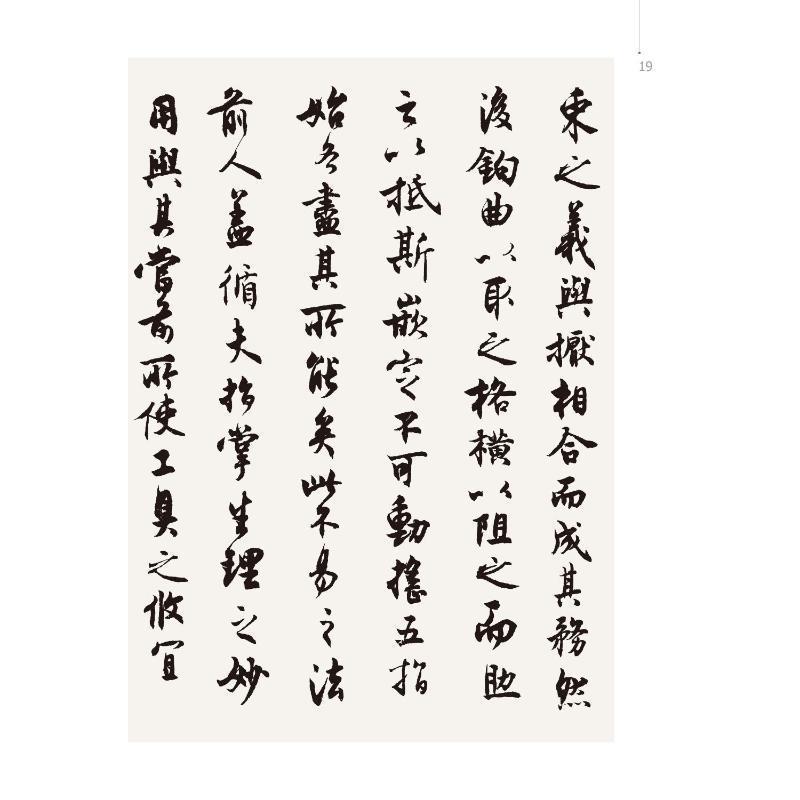 19
束之義與擫相合而成其務然
後鉤曲以取之格橫以阻之而助
之以抵斯嵌定不可動搖五指
始各盡其所能矣此不易之法
前人蓋循夫指掌生理之妙
用與其嘗前所使工具之攸宜